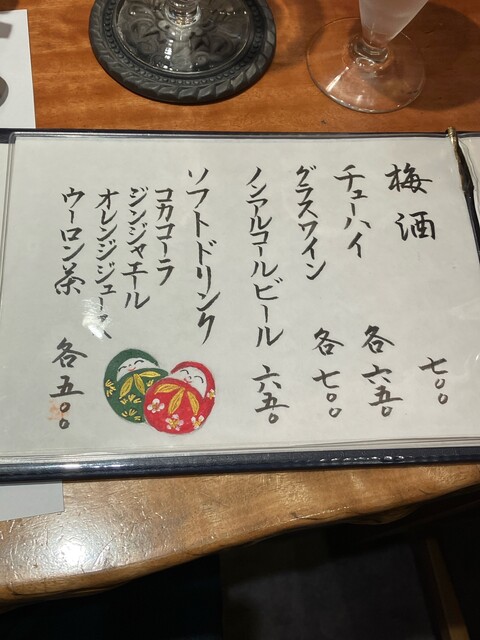 梅酒 七〇〇
チューハイ 各六五〇
グラスワイン 各七〇〇
ノンアルコールビール 六五〇
ソフトドリンク
コカコーラ
ジンジャエール
オレンジジュース
ウーロン茶 各五〇〇